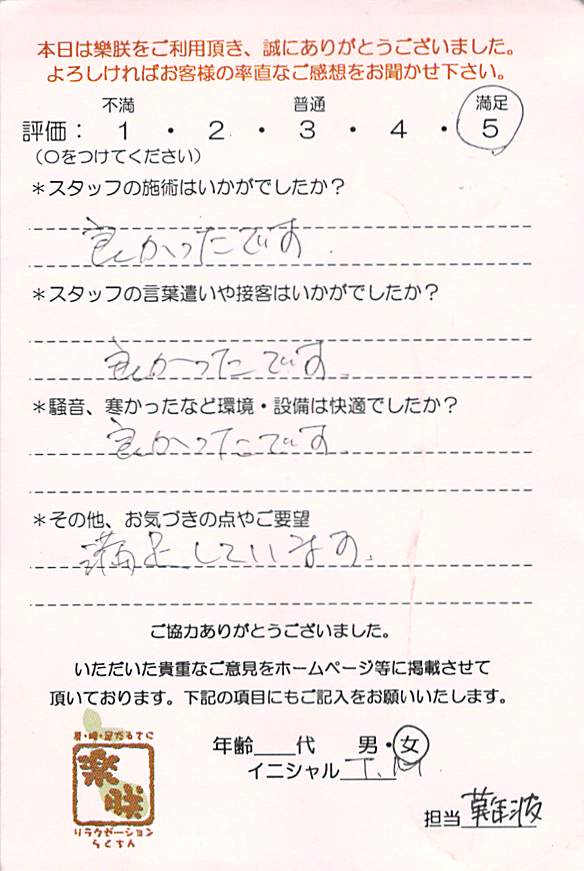 本日は樂朕をご利用頂き、誠にありがとうございました。
よろしければお客様の率直なご感想をお聞かせ下さい。
不満 普通 満足
評価： 1 ・ 2 ・ 3 ・ 4 ・ 5
（○をつけてください）
＊スタッフの施術はいかがでしたか？
良かったです.
＊スタッフの言葉遣いや接客はいかがでしたか？
良かったです.
＊騒音、寒かったなど環境・設備は快適でしたか？
良かったです.
＊その他、お気づきの点やご要望
満足しています.
ご協力ありがとうございました。
いただいた貴重なご意見をホームページ等に掲載させて
頂いております。下記の項目にもご記入をお願いいたします。
年齢____代 男・女
イニシャル T.M
担当 難波
楽朕
リラクゼーション
らくちん